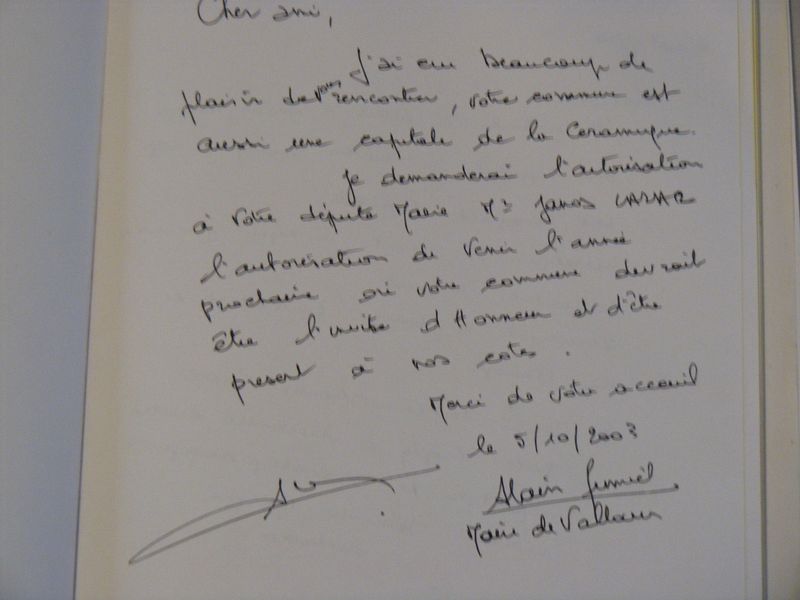 Cher ami,
J'ai eu beaucoup de
plaisir de vous rencontrer, votre commune est
aussi une capitale de la Ceramique.
Je demanderai l'autorisation
à votre député Maire Mr Janos LAZAR
l'autorisation de venir l'année
prochaine où votre commune devrait
être l'invité d'Honneur et d'être
présent à nos cotés.
Merci de votre acceuil
le 5/10/2003
Alain
Maire de Vallauris